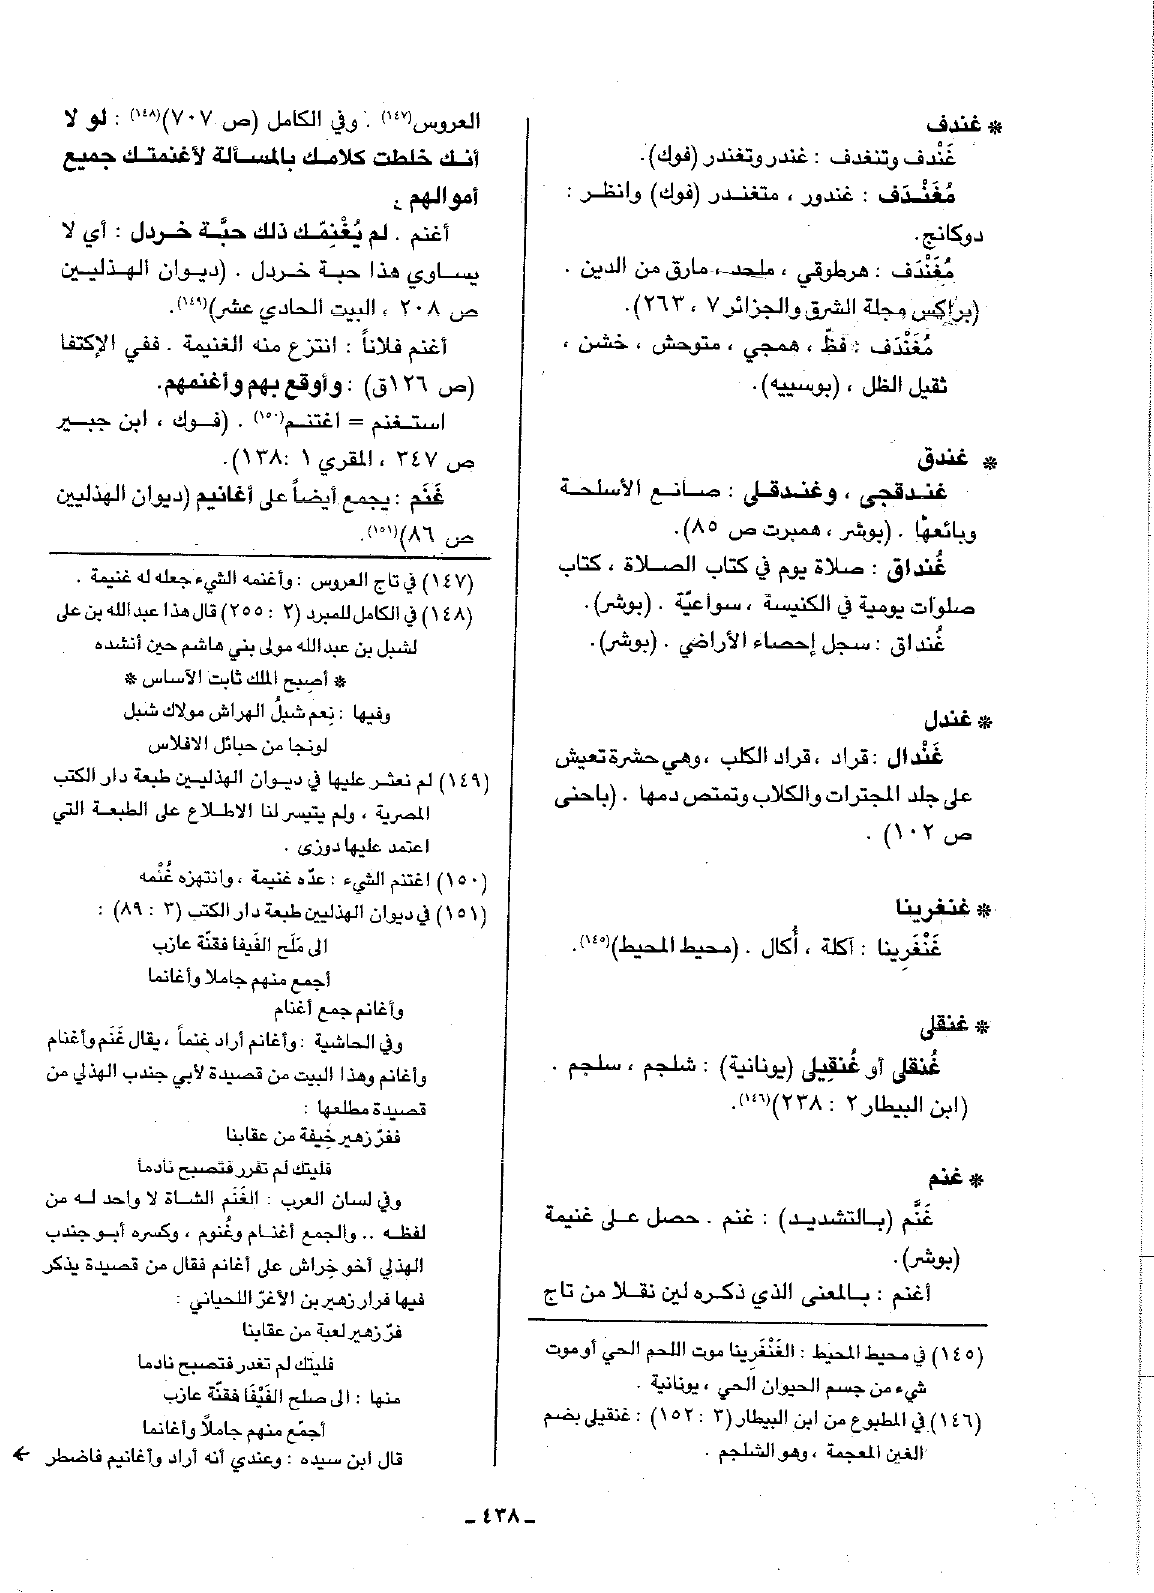 * غندف
غَنْدف وتنغدف : غندر وتغندر (فوك).
مُغَنْـدَف : غندور ، متغنـدر (فوك) وانظـر :
دوكانج.
مُغَنْدَف : هرطوقي ، ملحد، مارق من الدين .
(براكس مجلة الشرق والجزائر ٧ ، ٢٦٣).
مُغَنْدَف : فظّ ، همجي ، متوحش ، خشن ،
ثقيل الظل ، (بوسييه).
* غندق
غنـدقجي ، وغندقـلي : صـانـع الأسلحـة
وبائعها . (بوشر ، همبرت ص ٨٥).
غُنداق : صلاة يوم في كتاب الصـلاة ، كتاب
صلوات يومية في الكنيسة ، سواعيّة . (بوشر).
غُنداق : سجل إحصاء الأراضي . (بوشر).
* غندل
غَنْدال : قراد ، قراد الكلب ، وهي حشرة تعيش
على جلد المجترات والكلاب وتمتص دمها . (باحنى
ص ١٠٢) .
* غنغرينا
غَنْغَرِينا : آكلة ، أُكال . (محيط المحيط)(١٤٥).
* غنقلى
غُنقلى أو غُنقِيلى (يونانية) : شلجم ، سلجم .
(ابن البيطار ٢ : ٢٣٨)(١٤٦).
* غنم
غَنَّم (بـالتشديـد) : غنم . حصل عـلى غنيمة
(بوشر).
أغنم : بـالمعنى الذي ذكـره لين نقـلا من تاج
(١٤٥) في محيط المحيط : الغَنْغَرِينا موت اللحم الحي أو موت
شيء من جسم الحيوان الحي ، يونانية .
(١٤٦) في المطبوع من ابن البيطار (٣ : ١٥٢) : غنقيلى بضم
الغين المعجمة ، وهو الشلجم .
العروس(١٤٧) . وفي الكامل (ص ٧٠٧)(١٤٨) : لو لا
أنـك خلطت كلامـك بالمسـألة لأغنمتـك جميع
أموالهم ،
أغنم . لم يُغْنِمْـك ذلك حبَّـة خـردل : أي لا
يسـاوي هـذا حبـة خـردل . (ديـوان الهـذليـين
ص ٢٠٨ ، البيت الحادي عشر)(١٤٩).
أغنم فلاناً : انتزع منه الغنيمة . ففي الإكتفا
(ص ١٢٦ق) : وأوقع بهم وأغنمهم.
استـغنم = اغتنـم(١٥٠) . (فـوك ، ابن جبـير
ص ٣٤٧ ، المقري ١ : ١٣٨).
غَنَم : يجمع أيضاً على أغانيم (ديوان الهذليين
ص ٨٦)(١٥١).
(١٤٧) في تاج العروس : وأغنمه الشيء جعله له غنيمة .
(١٤٨) في الكامل للمبرد (٢ : ٢٥٥) قال هذا عبد الله بن علي
لشبل بن عبد الله مولى بني هاشم حين أنشده
* أصبح الملك ثابت الآساس *
وفيها : نِعم شبلُ الهراش مولاك شبل
لو نجا من حبائل الافلاس
(١٤٩) لم نعثـر عليها في ديـوان الهذليـين طبعة دار الكتب
المصرية ، ولم يتيسر لنا الاطـلاع على الطبعـة التي
اعتمد عليها دوزى .
(١٥٠) اغتنم الشيء : عدّه غنيمة ، وانتهزه غُنْمه
(١٥١) في ديوان الهذليين طبعة دار الكتب (٣ : ٨٩) :
الى مَلَح الفَيفا فقنّة عازب
أجمع منهم جاملا وأغانما
وأغانم جمع أغنام
وفي الحاشية : وأغانم أراد غنماً ، يقال غَنَم وأغنام
وأغانم وهذا البيت من قصيدة لأبي جندب الهذلي من
قصيدة مطلعها :
ففرّ زهير خِيفة من عقابنا
فليتك لم تفرر فتصبح نادما
وفي لسان العرب : الغَنَم الشـاة لا واحد لـه من
لفظـه .. والجمع أغنـام وغُنوم ، وكسره أبـو جندب
الهذلي أخو خِراش على أغانم فقال من قصيدة يذكر
فيها فرار زهير بن الأغرّ اللحياني :
فرّ زهير لعبة من عقابنا
فليتك لم تغدر فتصبح نادما
منها : الى صلح الفَيْفَا فقنّة عازب
أجمّع منهم جاملًا وأغانما
قال ابن سيده : وعندي أنه أراد وأغانيم فاضطر ←
ـ ٤٣٨ ـ